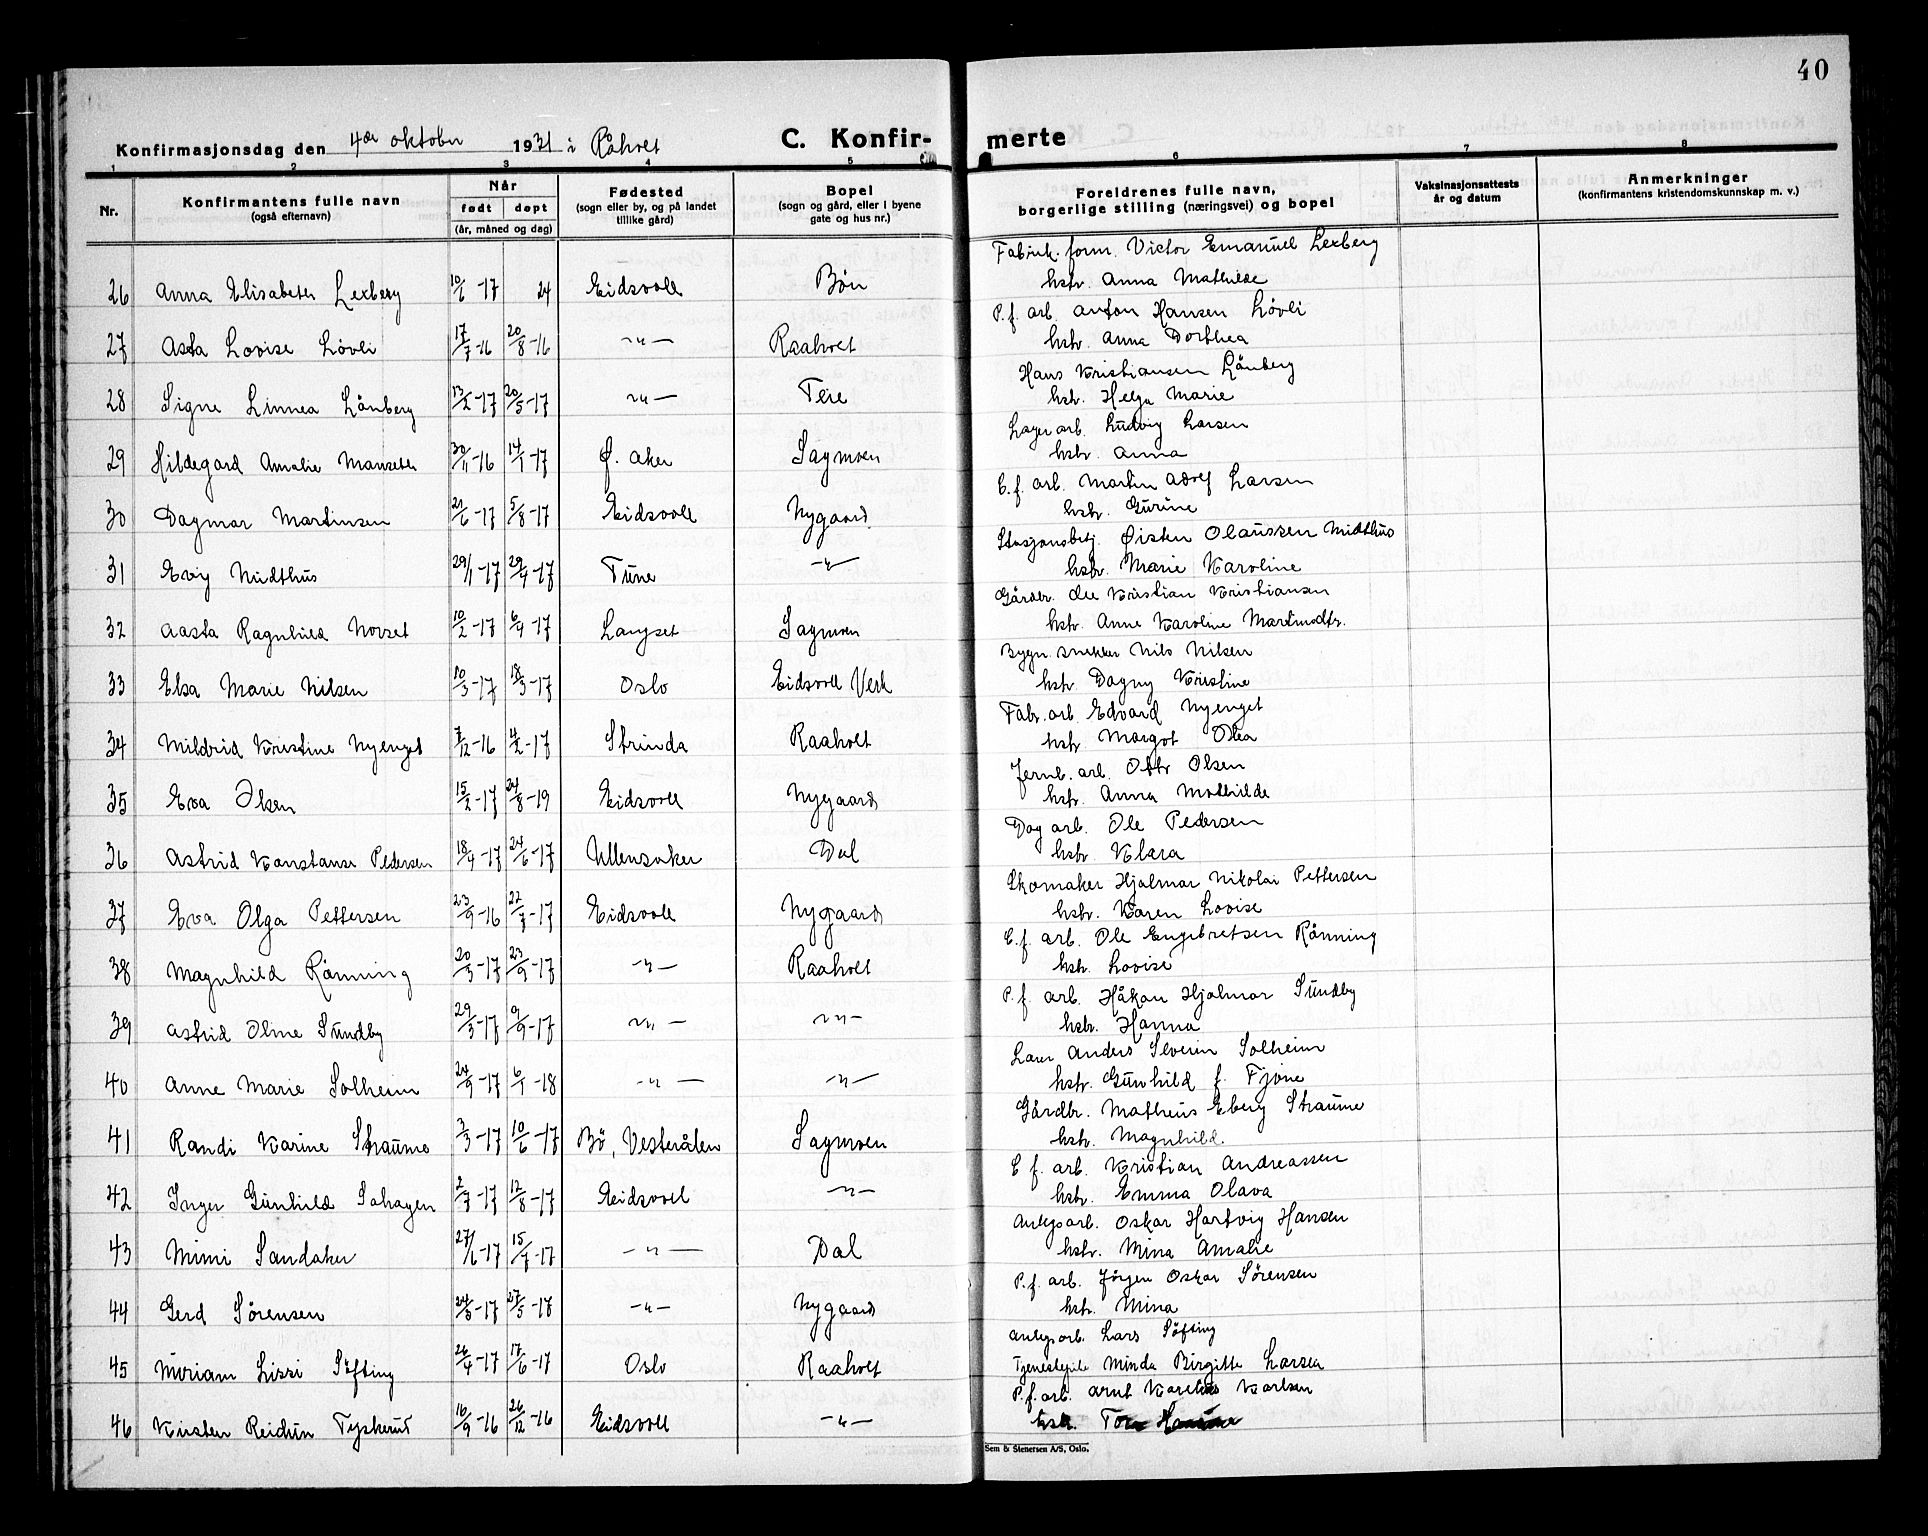 40
Konfirmasjonsdag den 4de oktober 1931 i Råholt
C. Konfir- merte
1 2 3 4 5 6 7 8
Nr. Konfirmantens fulle navn (også efternavn) Når født døpt (år, måned og dag) Fødested (sogn eller by, og på landet tillike gård) Bopel (sogn og gård, eller i byene gate og hus nr.) Foreldrenes fulle navn, borgerlige stilling (næringsvei) og bopel Vaksinasjonsattests år og datum Anmerkninger (konfirmantens kristendomskunnskap m. v.)
Fabrik. form. Victor Emanuel Lexberg
26 Anna Elisabeth Lexberg 10/6-17 24 Eidsvoll Bøn hstr. Anna Mathilde
P.f. arb. Anton Hansen Løvli
27 Asta Lovise Løvli 17/7-16 20/8-16 -"- Raaholt hstr. Anna Dorthea
Hans Kristiansen Lånberg
28 Signe Linnea Lånberg 13/2-17 20/5-17 -"- Teie hstr. Helga Marie
Lager arb. Ludvig Larsen
29 Hildegard Amalie Manseth 30/11-16 14/1-17 Ø. Aker Sagmoen hstr. Anna
E.f. arb. Martin Adolf Larsen
30 Dagmar Martinsen 21/6-17 5/8-17 Eidsvoll Nygaard hstr. Gurine
Stasjonsbetj. Øisten Olaussen Midthus
31 Evy Midthus 29/1-17 29/4-17 Tune -"- hstr. Marie Karoline
Gårdbr. Ole Kristian Kristiansen
32 Aasta Ragnhild Norset 10/2-17 6/4-17 Langset Sagmoen hstr. Anne Karoline Martinsdtr.
Bygn. snekker Nils Nilsen
33 Elsa Marie Nilsen 10/3-17 18/3-17 Oslo Eidsvoll Verk hstr. Dagny Kristine
Fabr. arb. Edvard Nyenget
34 Mildrid Kristine Nyenget 7/12-16 4/2-17 Strinda Raaholt hstr. Margot Olea
Jernb. arb. Otto Olsen
35 Eva Olsen 15/2-17 24/8-19 Eidsvoll Nygaard hstr. Anna Mathilde
Dag arb. Ole Pedersen
36 Astrid Konstanse Pedersen 18/4-17 24/6-17 Ullensaker Dal hstr. Klara
Skomaker Hjalmar Nikolai Pettersen
37 Eva Olga Pettersen 23/9-16 22/7-17 Eidsvoll Nygaard hstr. Karen Lovise
E.f. arb. Ole Engebretsen Rånning
38 Magnhild Rånning 20/5-17 23/9-17 -"- Raaholt hstr. Lovise
P.f. arb. Håkon Hjalmar Sundby
39 Astrid Oline Sundby 29/3-17 9/9-17 -"- -"- hstr. Hanna
Lærer Anders Severin Solheim
40 Anne Marie Solheim 24/9-17 6/1-18 -"- -"- hstr. Gunhild f. Tjöne
Gårdbr. Matheus Eberg Straume
41 Randi Karine Straume 3/3-17 10/6-17 Bø, Vesterålen Sagmoen hstr. Magnhild.
E f. arb. Kristian Andreassen
42 Inger Gunhild Sahagen 2/7-17 12/8-17 Eidsvoll -"- hstr. Emma Olava
Anlegsarb. Oskar Hartvig Hansen
43 Mimi Sandaker 27/6-17 15/7-17 -"- Dal hstr. Mina Amalie
P.f. arb. Jörgen Oskar Sörensen
44 Gerd Sörensen 24/3-17 27/5-17 -"- Nygaard hstr. Mina
Anlegsarb. Lars Söfting
45 Miriam Lissi Söfting 26/4-17 17/6-17 Oslo Raaholt Tjenestepike Minda Birgitte Larsen
P.f. arb. Arnt Karelius Karlsen
46 Kirsten Reidun Tyskerud 16/9-16 26/12-16 Eidsvoll -"- hstr. Tora
Sem & Stenersen A/S, Oslo.